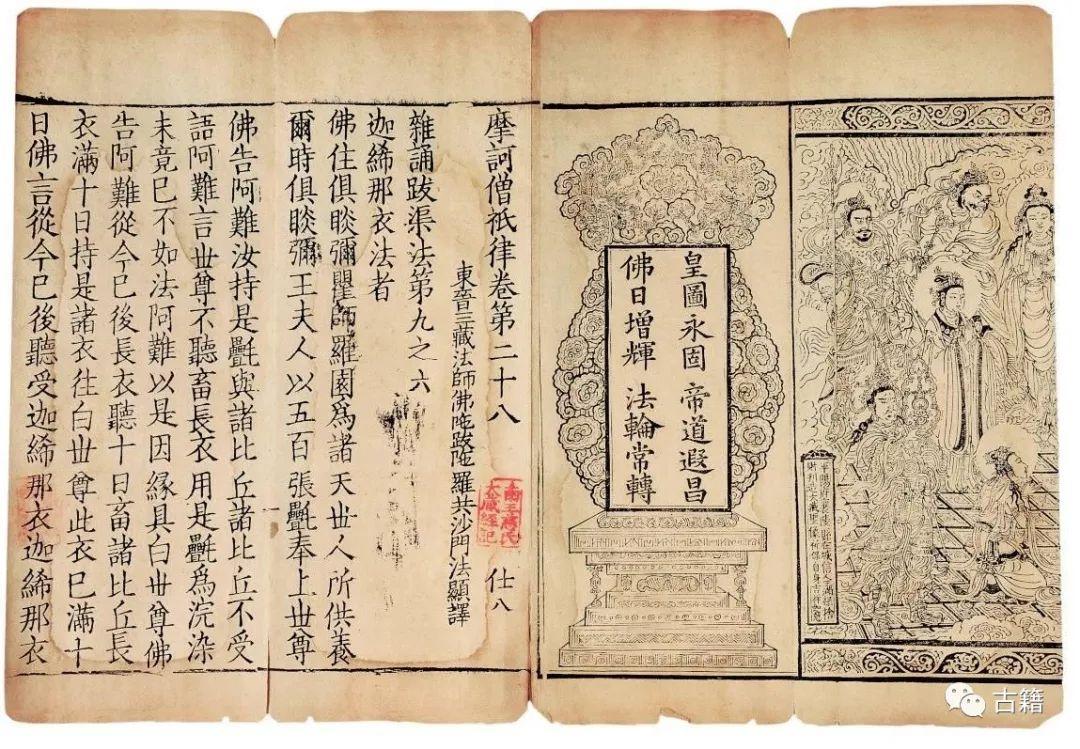 皇圖永固 帝道遐昌
佛日增輝 法輪常轉
摩訶僧祇律卷第二十八 仕八
東晉三藏法師佛陀跋陀羅共沙門法顯譯
雜誦跋渠法第九之六
迦絺那衣法者
佛住俱睒彌瞿師羅園爲諸天世人所供養
爾時俱睒彌王夫人以五百張㲲奉上世尊
佛告阿難汝持是㲲與諸比丘諸比丘不受
語阿難言世尊不聽畜長衣用是㲲爲浣染
未竟已不如法阿難以是因緣具白世尊佛
告阿難從今已後長衣聽十日畜諸比丘長
衣滿十日持是諸衣往白世尊此衣已滿十
日佛言從今已後聽受迦絺那衣迦絺那衣
古籍